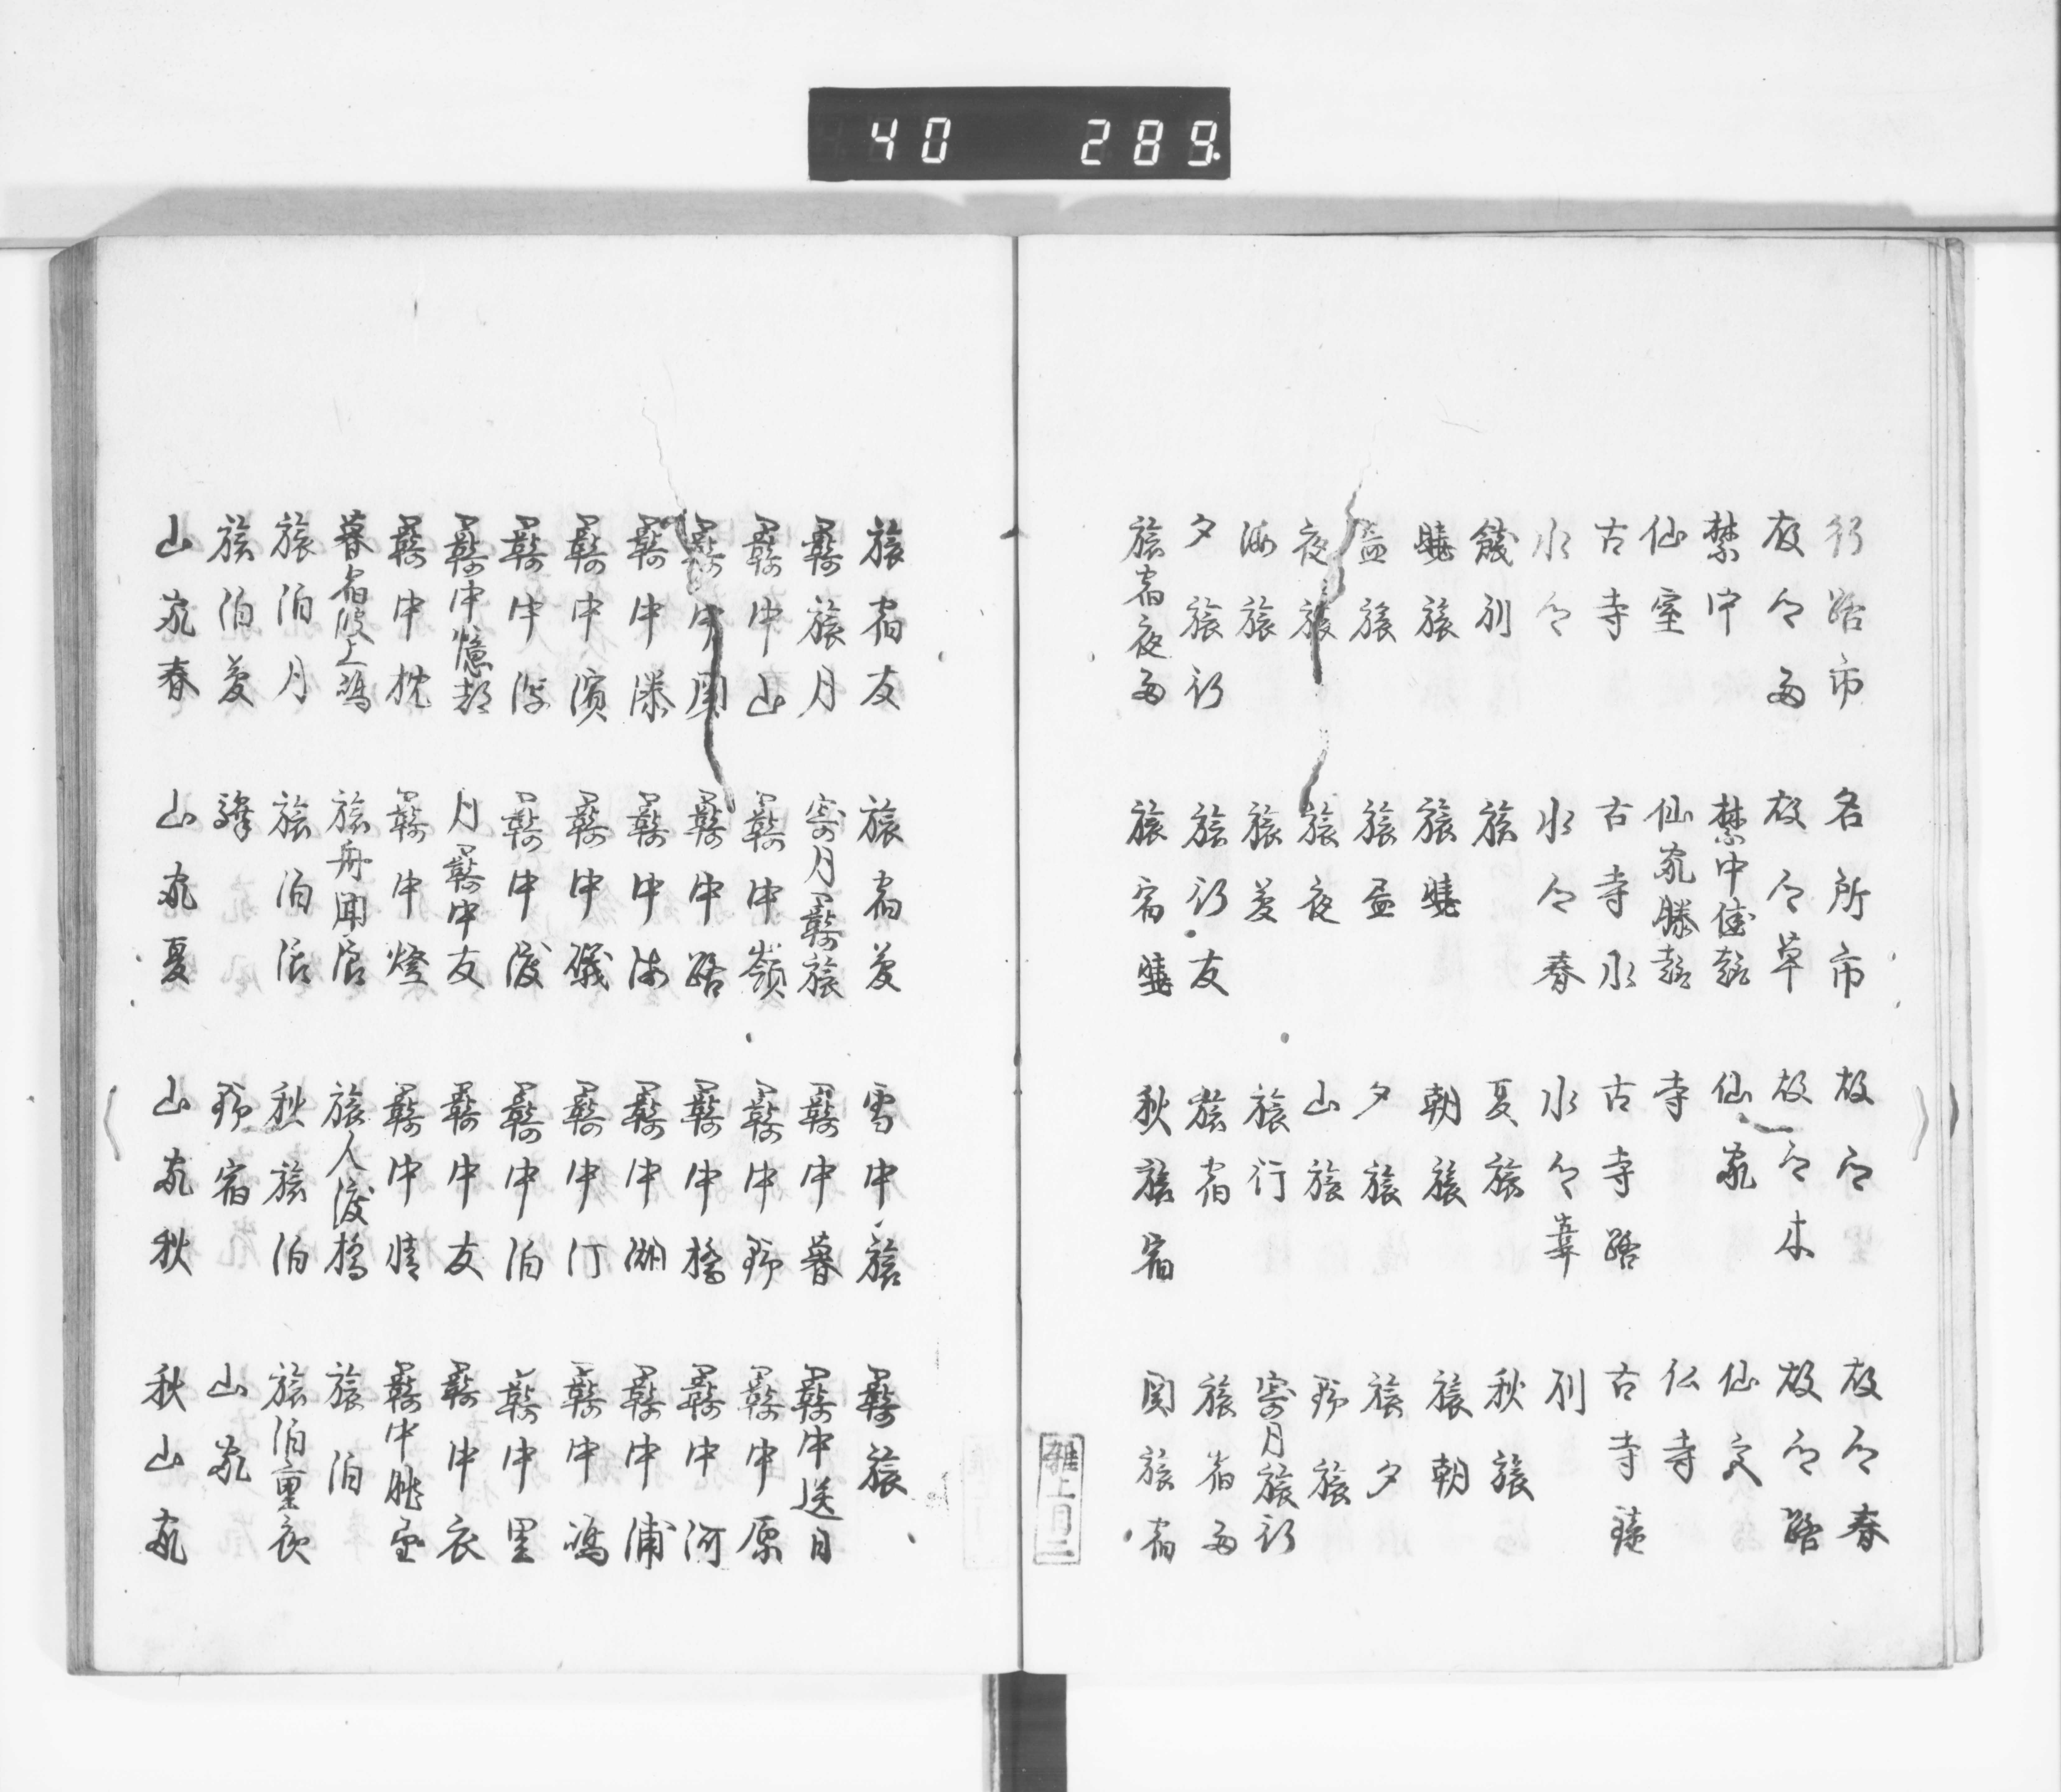 40 289
行路市 名所市 故郷 故郷春
故郷雨 故郷草 故郷木 故郷路
禁中 禁中佳趣 仙家 仙家
仙室 仙家勝趣 寺 仏寺
古寺 古寺水 古寺路 古寺鐘
水郷 水郷春 水郷華 別
餞別 旅 夏旅 秋旅
暁旅 旅暁 朝旅 旅朝
昼旅 旅昼 夕旅 旅夕
夜旅 旅夜 山旅 野旅
海旅 旅夢 旅行 寄月旅行
夕旅行 旅行友 旅宿 旅宿雨
旅宿夜雨 旅宿暁 秋旅宿 関旅宿
雑上目二
旅宿友 旅宿夢 雪中旅 羇旅
羇旅月 寄月羇旅 羇中暮 羇中送日
羇中山 羇中嶺 羇中野 羇中原
羇中関 羇中路 羇中橋 羇中河
羇中瀑 羇中海 羇中湖 羇中浦
羇中浜 羇中磯 羇中汀 羇中嶋
羇中浮 羇中渡 羇中泊 羇中里
羇中憶都 月羇中友 羇中友 羇中衣
羇中枕 羇中燈 羇中情 羇中眺望
暮宿波上嶋 旅舟聞浪 旅人渡橋 旅泊
旅泊月 旅泊浪 秋旅泊 旅泊重夜
旅泊夢 駅 野宿 山家
山家春 山家夏 山家秋 秋山家